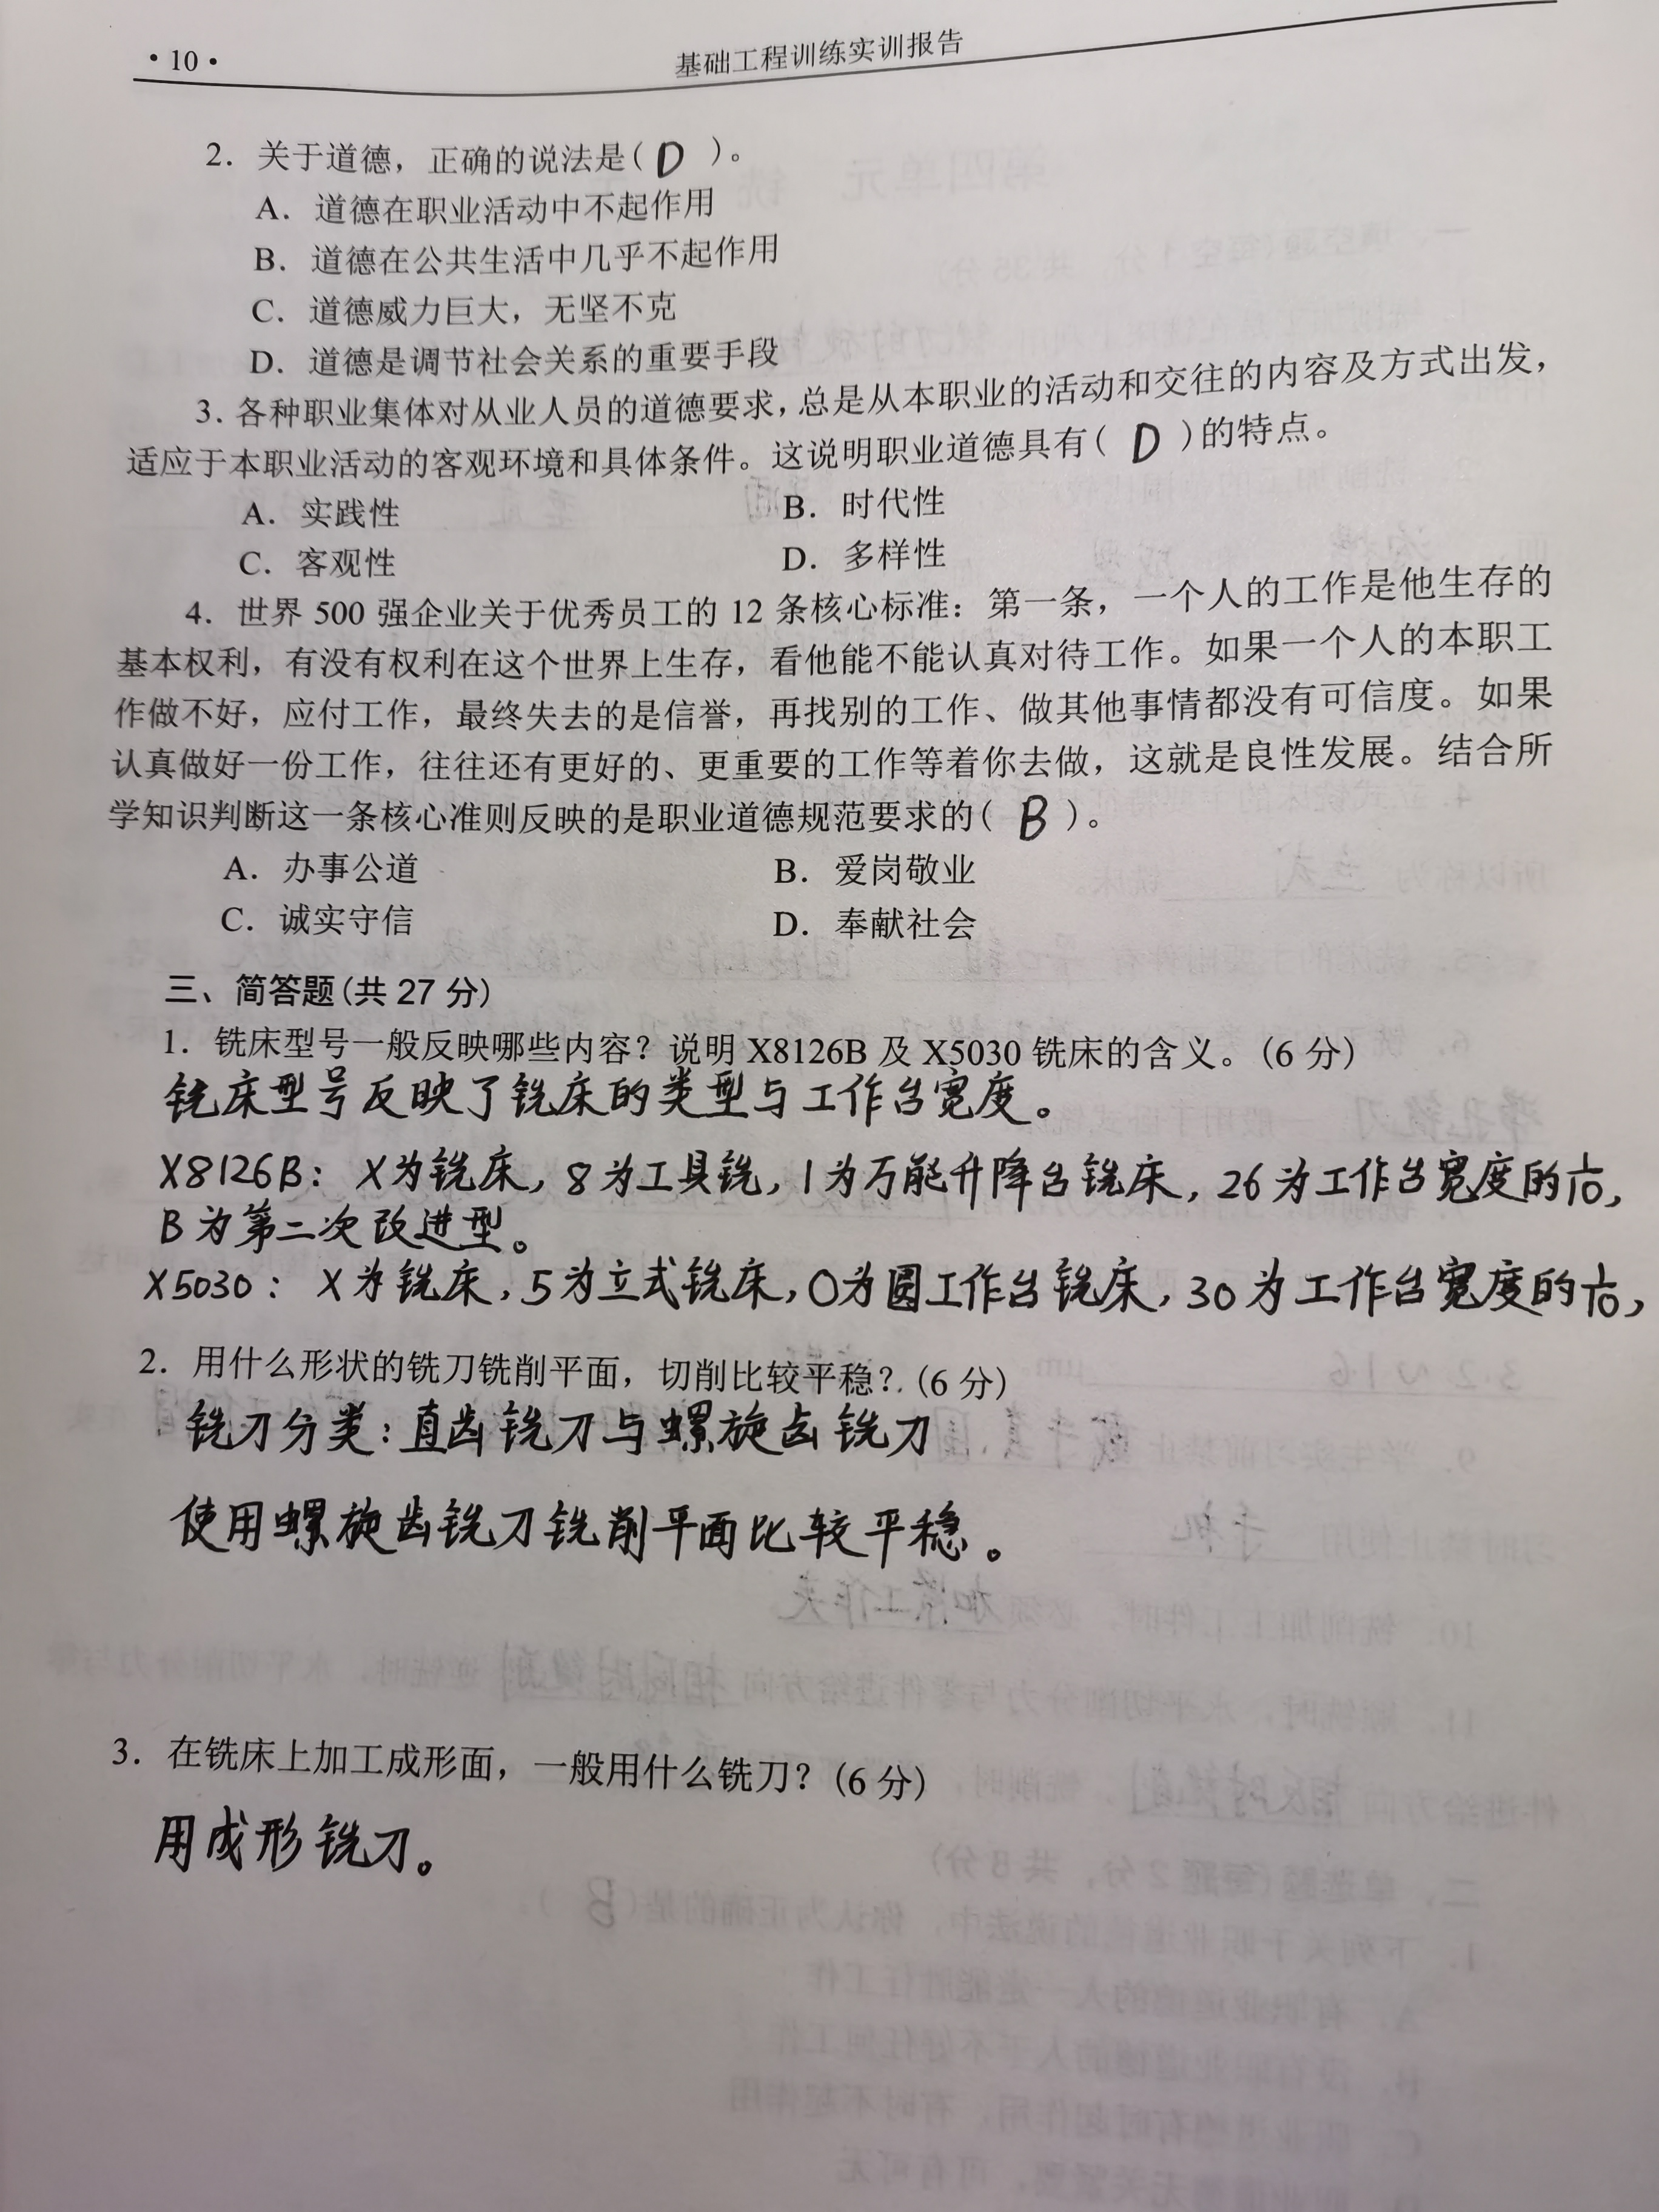 ·10·
基础工程训练实训报告
2. 关于道德，正确的说法是( D )。
A. 道德在职业活动中不起作用
B. 道德在公共生活中几乎不起作用
C. 道德威力巨大，无坚不克
D. 道德是调节社会关系的重要手段
3. 各种职业集体对从业人员的道德要求，总是从本职业的活动和交往的内容及方式出发，
适应于本职业活动的客观环境和具体条件。这说明职业道德具有( D )的特点。
A. 实践性 B. 时代性
C. 客观性 D. 多样性
4. 世界 500 强企业关于优秀员工的 12 条核心标准：第一条，一个人的工作是他生存的
基本权利，有没有权利在这个世界上生存，看他能不能认真对待工作。如果一个人的本职工
作做不好，应付工作，最终失去的是信誉，再找别的工作、做其他事情都没有可信度。如果
认真做好一份工作，往往还有更好的、更重要的工作等着你去做，这就是良性发展。结合所
学知识判断这一条核心准则反映的是职业道德规范要求的( B )。
A. 办事公道 B. 爱岗敬业
C. 诚实守信 D. 奉献社会
三、简答题(共 27 分)
1. 铣床型号一般反映哪些内容？说明 X8126B 及 X5030 铣床的含义。(6 分)
铣床型号反映了铣床的类型与工作台宽度。
X8126B：X为铣床，8为工具铣，1为万能升降台铣床，26为工作台宽度的1/10，
B为第二次改进型。
X5030：X为铣床，5为立式铣床，0为圆工作台铣床，30为工作台宽度的1/10，
2. 用什么形状的铣刀铣削平面，切削比较平稳？(6 分)
铣刀分类：直齿铣刀与螺旋齿铣刀
使用螺旋齿铣刀铣削平面比较平稳。
3. 在铣床上加工成形面，一般用什么铣刀？(6 分)
用成形铣刀。